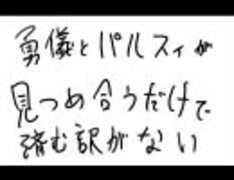 勇儀とパルスィが
見つめ合うだけで
済む訳がない